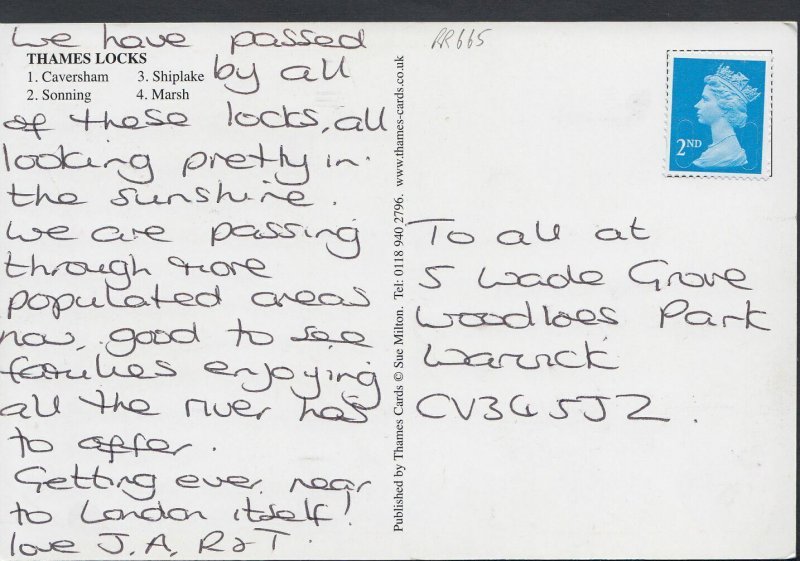 We have passed
THAMES LOCKS
1. Caversham 3. Shiplake
2. Sonning 4. Marsh
by all
of these locks, all
looking pretty in
the sunshine.
We are passing
through more
populated areas
now, good to see
families enjoying
all the river has
to offer.
Getting ever near
to London itself!
love J, A, R & T.
Published by Thames Cards © Sue Milton. Tel: 0118 940 2796. www.thames-cards.co.uk
RR665
2ND
To all at
5 Wade Grove
Woodloes Park
Warwick
CV34 5JZ.